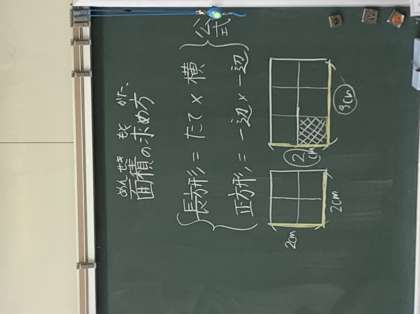 めんせき もと かた
面積の求め方
長方形 = たて × 横
正方形 = 一辺 × 一辺
公式
3cm
2cm
2cm
2cm